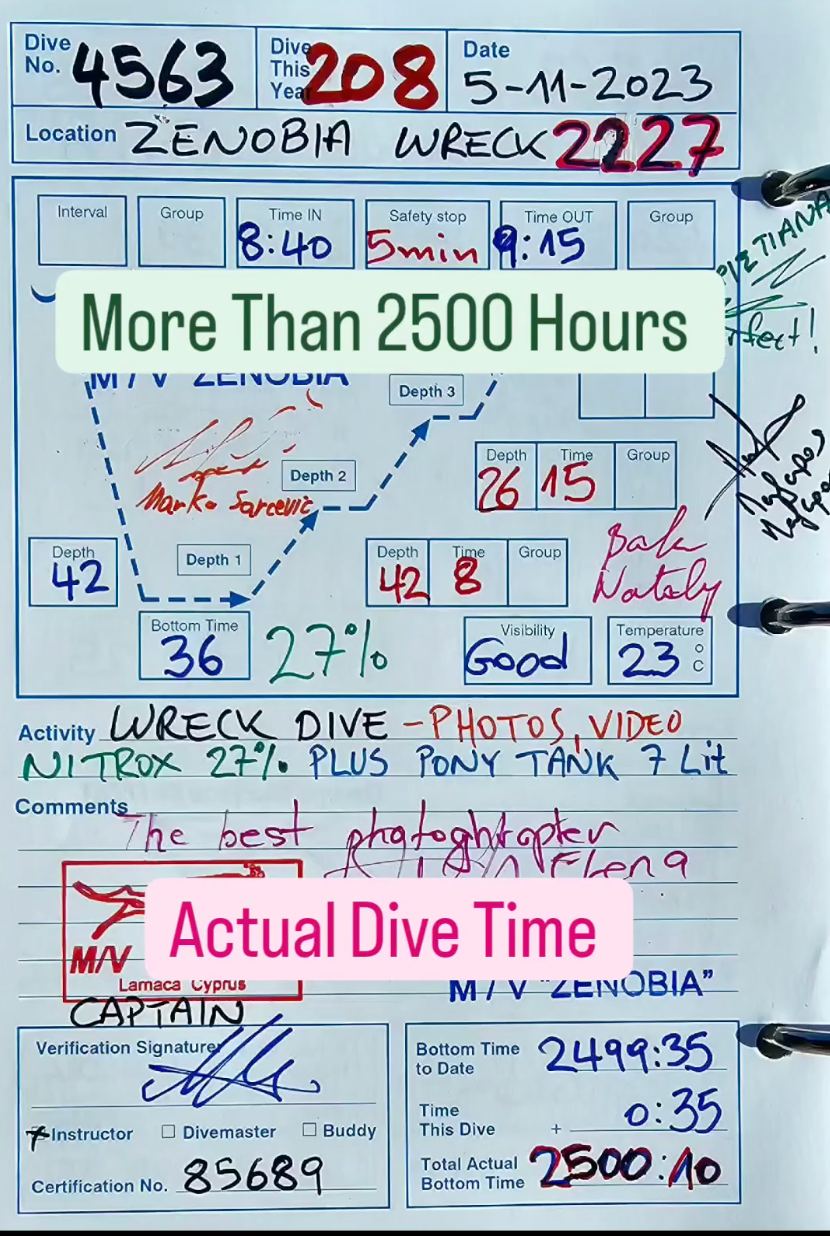 Dive No. 4563 Dive This Year 208 Date 5-11-2023
Location ZENOBIA WRECK 2227
Interval Group Time IN 8:40 Safety stop 5min Time OUT 9:15 Group
More Than 2500 Hours
M/V ZENOBIA
Depth 3
Depth 26 Time 15 Group
Depth 2
Marko Sarcevic
Depth 1
Depth 42
Depth 42 Time 8 Group
Nataly
Bottom Time 36 27% Visibility Good Temperature 23 °C
Activity WRECK DIVE - PHOTOS, VIDEO
NITROX 27% PLUS PONY TANK 7 Lit
Comments The best photoghtopter
Elena
Actual Dive Time
M/V
Larnaca Cyprus
M/V "ZENOBIA"
CAPTAIN
Verification Signature
Instructor Divemaster Buddy
Certification No. 85689
Bottom Time to Date 2499:35
Time This Dive + 0:35
Total Actual Bottom Time 2500:10